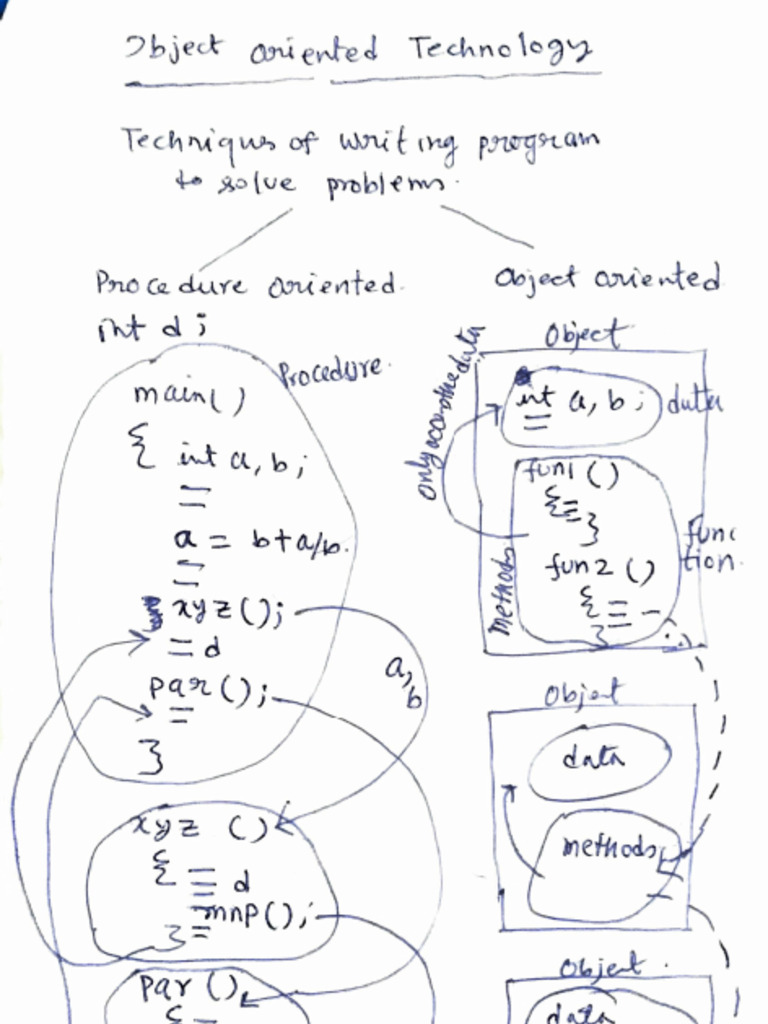 Object oriented Technology
Techniqus of writing program
to solve problems.
Procedure oriented.
int d;
Procedure.
main()
{ int a, b;
a = b+a/b.
xyz();
= d
par();
=
}
a, b
xyz ()
{ = d
mnp();
} =
par ()
{ -
Object oriented
Object
int a, b;
=
data
fun1 ()
{ =
}
fun2 ()
{ =
}
methods
function.
Object
data
methods
Object.
data